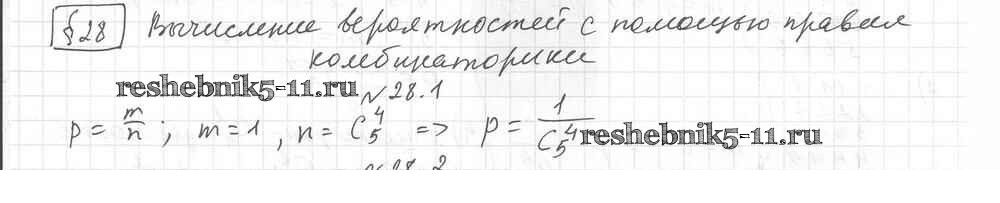 §28 Вычисление вероятностей с помощью правил
комбинаторики
reshebnik5-11.ru №28.1
p = m/n ; m = 1 , n = C₅⁴ => p = 1/C₅⁴ reshebnik5-11.ru
№28.2